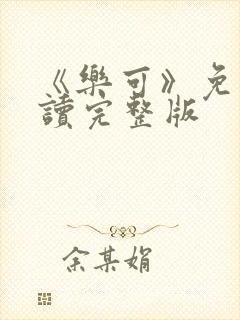 《樂可》免
讀完整版
余某娟